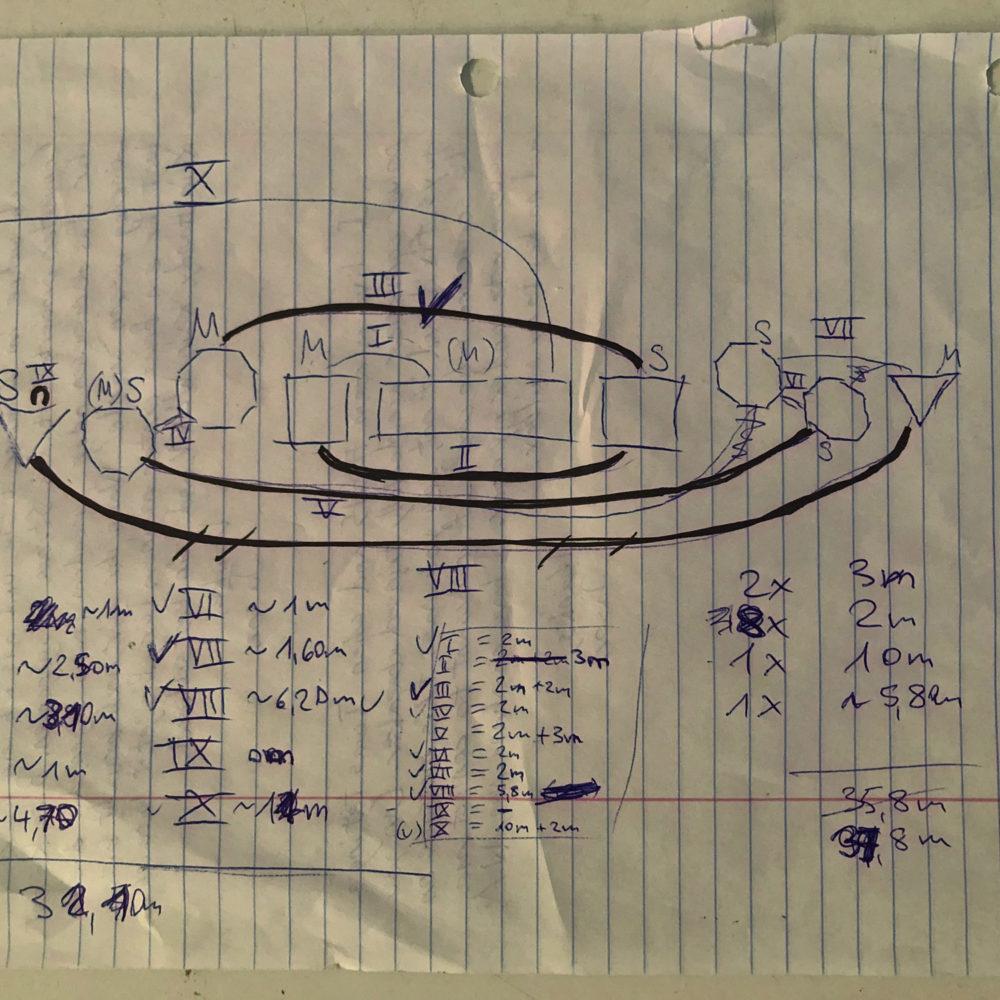 X
III
M I (M) S
M
S IX (M) S
IV
II
V
S VII
VI
S
M
VIII
~1m ✓ VI ~1m
~2,50m ✓ VII ~1,60m
✓ VIII ~6,20m ✓
~1m IX 0m
~4,70 - X
I = 2m
II = 3m
III = 2m + 2m
IV = 2m
V = 2m + 3m
VI = 2m
VII = 2m
VIII = 5,8m
IX = -
(✓) X = 10m + 2m
2x 3m
8x 2m
1x 10m
1x ~5,8m
35,8m
37,8m